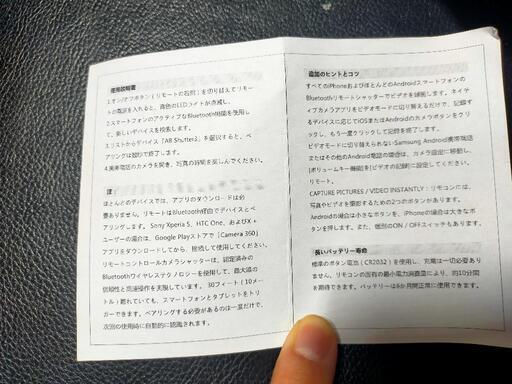 使用説明書
1.オン/オフボタン(リモートの右側)を切り替えてリモー
トの電源を入れると、青色のLEDライトが点滅し、
2.スマートフォンのアクティブなBluetooth機能を使用し
て、新しいデバイスを検索します。
3.リストからデバイス「AB Shutter3」を選択すると、ペ
アリングは数秒で終了します。
4.携帯電話のカメラを開き、写真の時間を楽しんでください。
注
ほとんどのデバイスでは、アプリのダウンロードは必
要ありません。リモートはBluetooth経由でデバイスとペ
アリングします。 Sony Xperia S、HTC One、およびX +
ユーザーの場合は、Google Playストアで「Camera 360」
アプリをダウンロードしてから、接続して使用してください。
リモートコントロールカメラシャッターは、認定済みの
Bluetoothワイヤレステクノロジーを使用して、最大値の
信頼性と高速操作を実現しています。 30フィート(10メー
トル)離れていても、スマートフォンとタブレットをトリ
ガーできます。ペアリングする必要があるのは一度だけで、
次回の使用時に自動的に認識されます。
追加のヒントとコツ
すべてのiPhoneおよびほとんどのAndroidスマートフォンの
Bluetoothリモートシャッターでビデオを録画します。ネイティ
ブカメラアプリをビデオモードに切り替えるだけで、記録す
るデバイスに応じてiOSまたはAndroidのカメラボタンをクリッ
クし、もう一度クリックして記録を終了します。
ビデオモードに切り替えられないSamsung Android携帯電話
またはその他のAndroid電話の場合は、カメラ設定に移動し、
[ボリュームキー機能]を[ビデオの記録]に設定してください。
リモート。
CAPTURE PICTURES / VIDEO INSTANTLY:リモコンには、
写真やビデオを撮影するための2つのボタンがあります。
Androidの場合は小さなボタンを、iPhoneの場合は大きなボ
タンを押します。また、個別のON / OFFスイッチもあります。
長いバッテリー寿命
標準のボタン電池(CR2032)を使用し、充電は一切必要あり
ません。リモコンの固有の最小電力消費量により、約10分間
を期待できます。バッテリーは6か月間正常に使用できます。